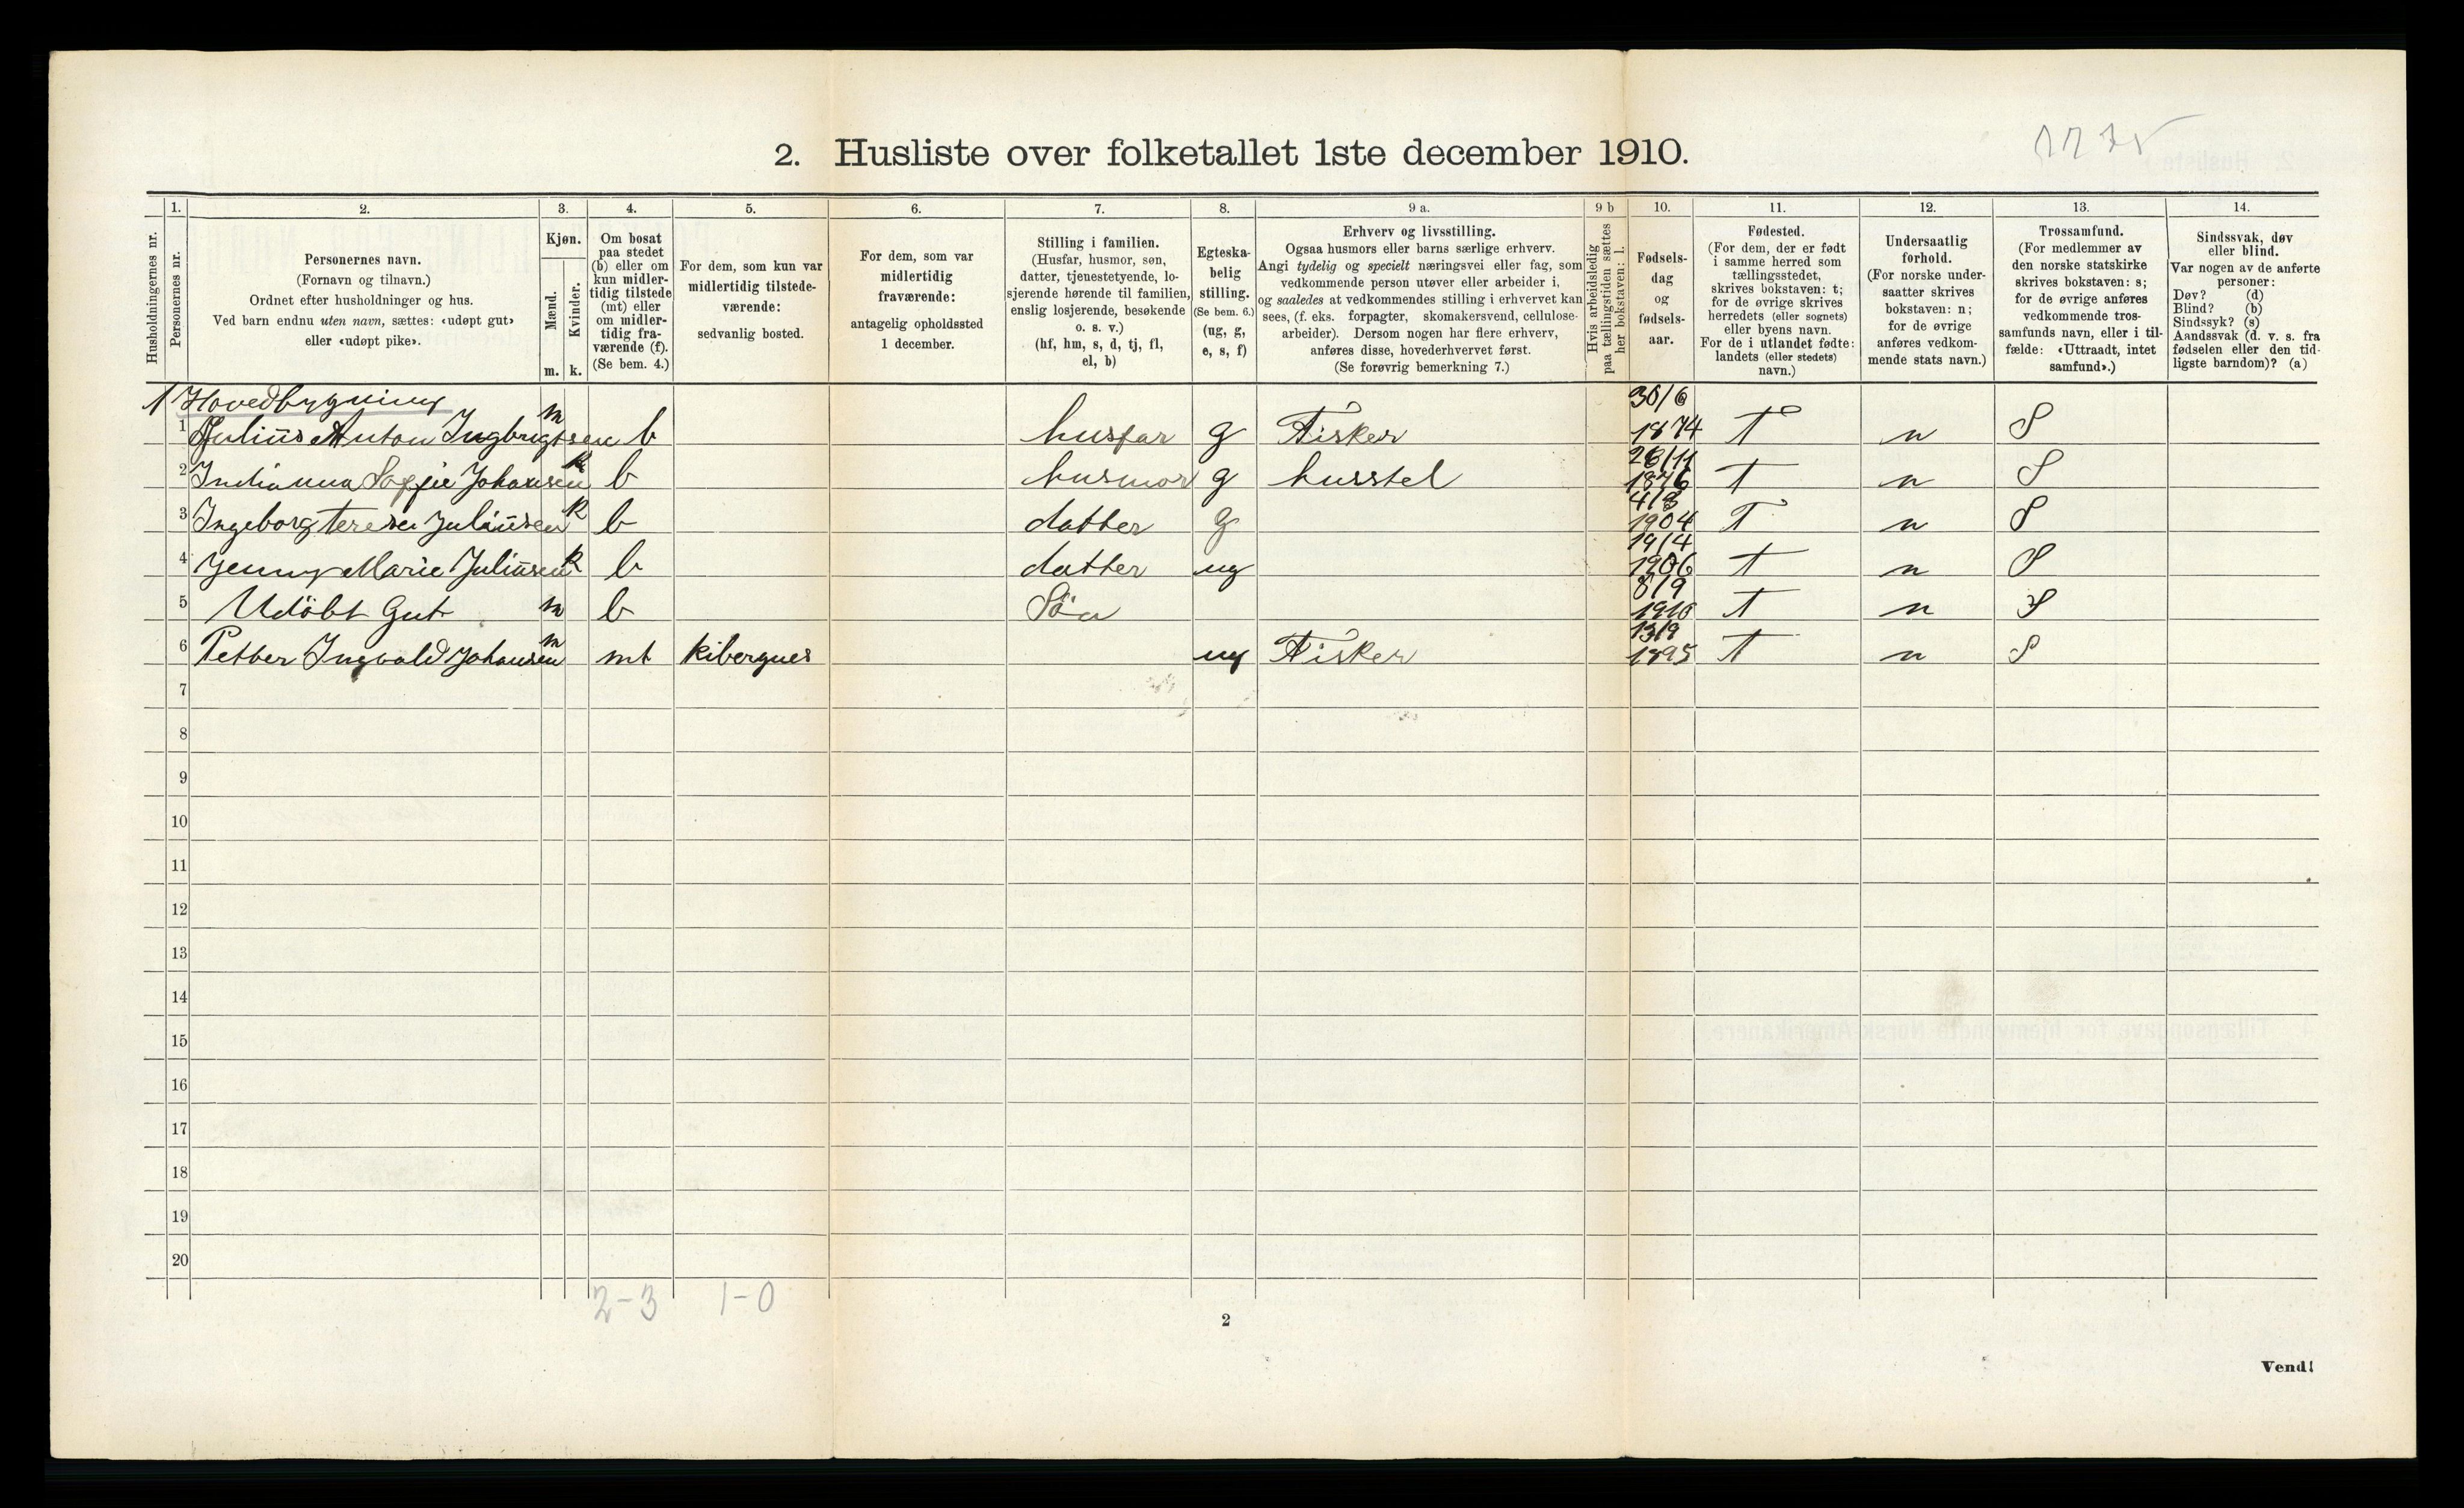 2. Husliste over folketallet 1ste december 1910.
1. 2. 3. 4. 5. 6. 7. 8. 9 a. 9 b 10. 11. 12. 13. 14.
Husholdningernes nr.
Personernes nr.
Personernes navn.
(Fornavn og tilnavn.)
Ordnet efter husholdninger og hus.
Ved barn endnu uten navn, sættes: «udøpt gut»
eller «udøpt pike».
Kjøn.
Mænd.
Kvinder.
m. k.
Om bosat
paa stedet
(b) eller om
kun midler-
tidig tilstede
(mt) eller
om midler-
tidig fra-
værende (f).
(Se bem. 4.)
For dem, som kun var
midlertidig tilstede-
værende:
sedvanlig bosted.
For dem, som var
midlertidig
fraværende:
antagelig opholdssted
1 december.
Stilling i familien.
(Husfar, husmor, søn,
datter, tjenestetyende, lo-
sjerende hørende til familien,
enslig losjerende, besøkende
o. s. v.)
(hf, hm, s, d, tj, fl,
el, b)
Egteska-
belig
stilling.
(Se bem. 6.)
(ug, g,
e, s, f)
Erhverv og livsstilling.
Ogsaa husmors eller barns særlige erhverv.
Angi tydelig og specielt næringsvei eller fag, som
vedkommende person utøver eller arbeider i,
og saaledes at vedkommendes stilling i erhvervet kan
sees, (f. eks. forpagter, skomakersvend, cellulose-
arbeider). Dersom nogen har flere erhverv,
anføres disse, hovederhvervet først.
(Se forøvrig bemerkning 7.)
Hvis arbeidsledig
paa tællingstiden sættes
her bokstaven: l.
Fødsels-
dag
og
fødsels-
aar.
Fødested.
(For dem, der er født
i samme herred som
tællingsstedet,
skrives bokstaven: t;
for de øvrige skrives
herredets (eller sognets)
eller byens navn.
For de i utlandet fødte:
landets (eller stedets)
navn.)
Undersaatlig
forhold.
(For norske under-
saatter skrives
bokstaven: n;
for de øvrige
anføres vedkom-
mende stats navn.)
Trossamfund.
(For medlemmer av
den norske statskirke
skrives bokstaven: s;
for de øvrige anføres
vedkommende tros-
samfunds navn, eller i til-
fælde: «Uttraadt, intet
samfund».)
Sindssvak, døv
eller blind.
Var nogen av de anførte
personer:
Døv? (d)
Blind? (b)
Sindssyk? (s)
Aandssvak (d. v. s. fra
fødselen eller den tid-
ligste barndom)? (a)
1 Hovedbygning
1 Julius Anton Ingbrigtsen m b husfar g Fisker 30/6 1874 T n S
2 Indianna Soffie Johansen k b husmor g husstel 1876 T n S
3 Ingeborg teresa Juliusen k b datter g 4/8 1904 T n S
4 Jenny Marie Juliusen k b datter ug 19/4 1906 T n S
5 Udöbt Gut m b Sön 8/9 1910 T n S
6 Petter Ingvald Johansen m mt Kibergnes ug Fisker 13/9 1895 T n S
7
8
9
10
11
12
13
14
15
16
17
18
19
20
2-3 1-0
2
Vend!